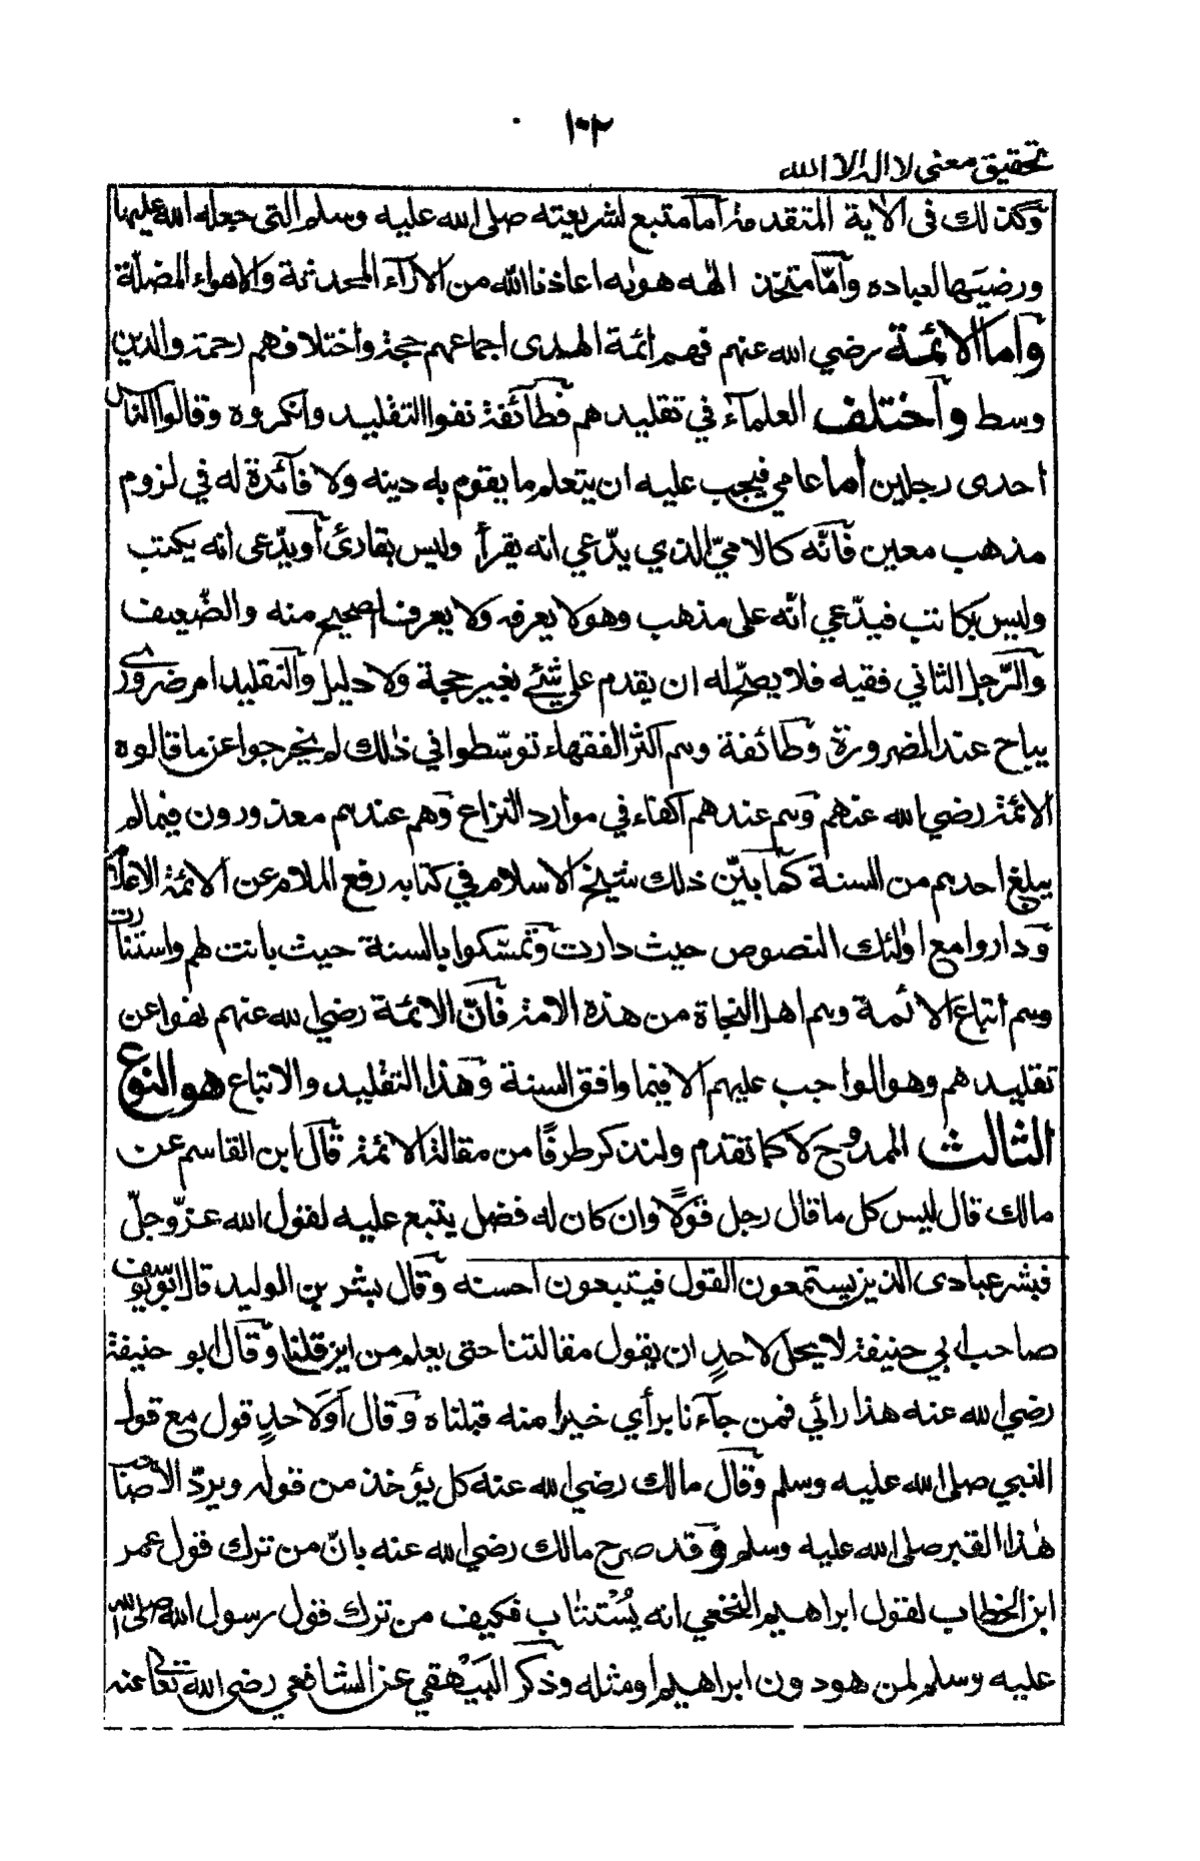 ١٠٢
تحقيق معنى لا اله الا الله
وكذلك في الاية المتقدمة اما متبع لشريعته صلى الله عليه وسلم التى جعله الله عليها
ورضيها لعباده واما متخذ الهه هواه اعاذنا الله من الآراء المحدثة والاهواء المضلة
واما الائمة رضي الله عنهم فهم ائمة الهدى اجماعهم حجة واختلافهم رحمة والدين
وسط واختلف العلمآء في تقليدهم فطآئفة نفوا التقليد وانكروه وقالوا الناس
احدى رجلين اما عامي فيجب عليه ان يتعلم ما يقوم به دينه ولا فآئدة له في لزوم
مذهب معين فانّه كالاميّ الذي يدّعي انه يقرأ وليس بقارئ أو يدّعى انه يكتب
وليس بكاتب فيدّعي انّه على مذهب وهو لا يعرفه ولا يعرف الصحيح منه والضّعيف
والرّجل الثاني فقيه فلا يصحّ له ان يقدم على شئ بغير حجة ولا دليل والتقليد امر ضروري
يباح عند الضرورة وطائفة وهم اكثر الفقهاء توسّطوا في ذلك لم يخرجوا عن ما قالوه
الائمة رضي الله عنهم وهم عندهم اكفاء في موارد النزاع وهم عندهم معذورون فيما لم
يبلغ احدهم من السنة كما بيّن ذلك شيخ الاسلام في كتابه رفع الملام عن الائمة الاعلام
وداروا مع اولئك النصوص حيث دارت وتمسّكوا بالسنة حيث بانت لهم واستنارت
وهم اتباع الائمة وهم اهل النجاة من هذه الامة فانّ الائمة رضي الله عنهم نهوا عن
تقليدهم وهو الواجب عليهم الا فيما وافق السنة وهذا التقليد والاتباع هو النوع
الثالث الممدوح لا كما تقدم ولنذكر طرفًا من مقالة الائمة قال ابن القاسم عن
مالك قال ليس كل ما قال رجل قولًا وان كان له فضل يتبع عليه لقول الله عزّ وجلّ
فبشر عبادى الذين يستمعون القول فيتبعون احسنه وقال بشر بن الوليد قال ابو يوسف
صاحب ابي حنيفة لا يحل لاحدٍ ان يقول مقالتنا حتى يعلم من اين قلنا وقال ابو حنيفة
رضي الله عنه هذا رائي فمن جآءنا برأي خيرا منه قبلناه وقال أولاحدٍ قول مع قول
النبي صلى الله عليه وسلم وقال مالك رضي الله عنه كل يؤخذ من قوله ويردّ الا صاحب
هٰذا القبر صلى الله عليه وسلم وقد صرح مالك رضي الله عنه بانّ من ترك قول عمر
ابن الخطاب لقول ابراهيم النخعي انه يُسْتتاب فكيف من ترك قول رسول الله صلى الله
عليه وسلم لمن هو دون ابراهيم او مثله وذكر البيهقي عن الشافعي رضي الله تعالى عنه